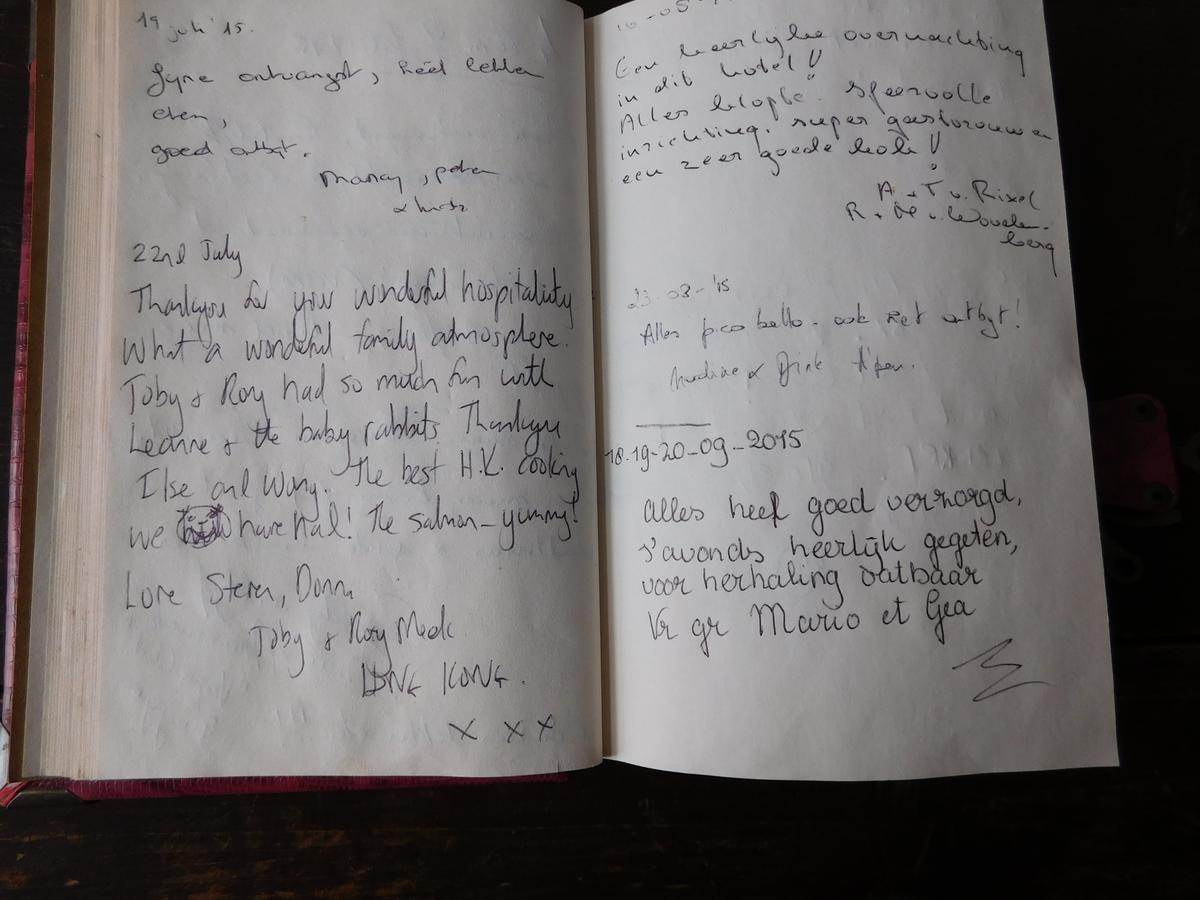 19 juli '15.
Fijne ontvangst, heel lekker
eten,
goed ontbijt.
22nd July
Thankyou for your wonderful hospitaliuty
What a wonderful family atmosphere.
Toby & Rory had so much fun with
Leanne & the baby rabbits. Thankyou
Ilse and Wang. The best H.K. cooking
we have had! The salmon - yummy!
Love Steven, Donna
Toby & Rory Meek
HONG KONG.
X X X
Een heerlijke overnachting
in dit hotel!!
Alles klopte: sfeervolle
inrichting, super gastvrouw en
een zeer goede kok!!
A + T v. Rixel
R + M v. Wouden-
berg
23-08-'15
Alles pico bello - ook het ontbijt!
18-19-20-09-2015
alles heel goed verzorgd,
s'avonds heerlijk gegeten,
voor herhaling vatbaar
Vr gr Mario et Gea